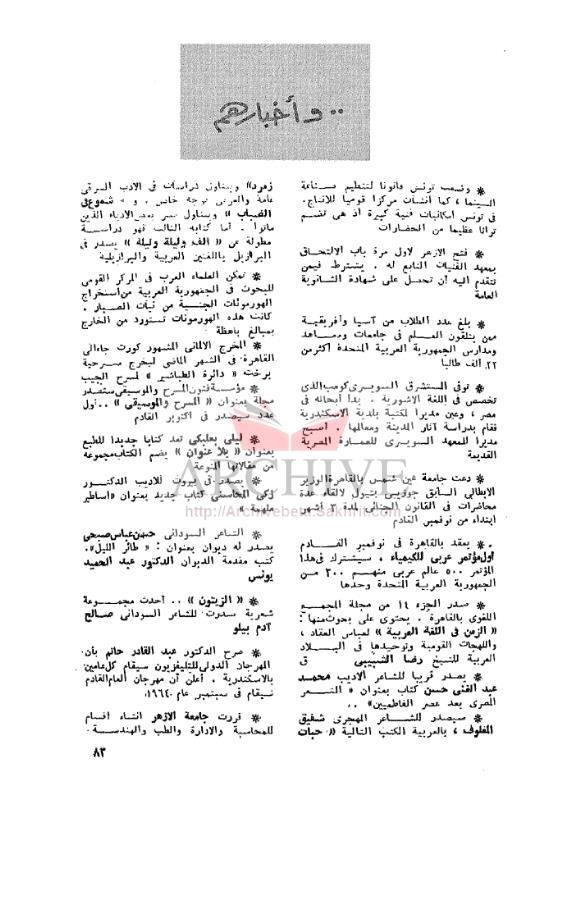 .. وأخبارهم
* وضعت تونس قانونا لتنظيم صناعة
السينما ، كما أنشأت مركزا قوميا للانتاج.
في تونس امكانيات فنية كبيرة اذ هى تضم
تراثا عظيما من الحضارات
* فتح الازهر لاول مرة باب الالتحاق
بمعهد الفتيات التابع له . يشترط فيمن
تتقدم اليه أن تحصل على شهادة الثانوية
العامة
* بلغ عدد الطلاب من آسيا وأفريقية
ممن يتلقون العلم فى جامعات ومعاهد
ومدارس الجمهورية العربية المتحدة أكثر من
٢٢ ألف طالبا
* توفى المستشرق السويسرى الذى
تخصص فى اللغة الاشورية . بدأ أبحاثه فى
مصر ، وعين مديرا لمكتبة بلدية الاسكندرية
فقام بدراسة آثار المدينة ومعالمها . أصبح
مديرا للمعهد السويسرى للعمارة المصرية
القديمة
* دعت جامعة عين شمس بالقاهرة الوزير
الايطالى السابق جوزيبى بتيول لالقاء عدة
محاضرات فى القانون الجنائى لمدة ٣ أشهر
ابتداء من نوفمبر القادم
* يعقد بالقاهرة فى نوفمبر القادم
أول مؤتمر عربى للكيمياء ، سيشترك فى هذا
المؤتمر ٥٠٠ عالم عربى منهم ٣٠٠ من
الجمهورية العربية المتحدة وحدها
* صدر الجزء ١٤ من مجلة المجمع
اللغوى بالقاهرة . يحتوى على بحوث منها :
« الزمن فى اللغة العربية » لعباس العقاد ،
واللهجات القومية وتوحيدها فى البلاد
العربية للشيخ رضا الشبيبى
* يصدر قريبا للشاعر الاديب محمد
عبد الغنى حسن كتاب بعنوان « الشعر
المصرى بعد عصر الفاطميين » ..
* سيصدر للشاعر المهجرى شفيق
المعلوف ، بالعربية الكتب التالية « حبات
زمرد » ويتناول دراسات فى الادب الشرقى
عامة والعربى بوجه خاص . و « شموع فى
الضباب » ويتناول سير بعض الادباء الذين
ماتوا . أما كتابه الثالث فهو دراسة
مطولة عن « ألف وليلة وليلة » يصدر فى
البرازيل باللغتين العربية والبرازيلية
* تمكن العلماء العرب فى المركز القومى
للبحوث فى الجمهورية العربية من استخراج
الهورمونات الجنسية من نبات الصبار .
كانت هذه الهورمونات تستورد من الخارج
بمبالغ باهظة
* المخرج الالمانى المشهور كورت جاء الى
القاهرة فى الشهر الماضى ليخرج مسرحية
برخت « دائرة الطباشير » لمسرح الجيب
* مؤسسة فنون المسرح والموسيقى ستصدر
مجلة بعنوان « المسرح والموسيقى » .. أول
عدد سيصدر فى أكتوبر القادم
* ليلى بعلبكى تعد كتابا جديدا للطبع
بعنوان « بلا عنوان » يضم الكتاب مجموعة
من مقالاتها المنوعة
* يصدر فى بيروت للاديب الدكتور
زكى المحاسنى كتاب جديد بعنوان « أساطير
ملهمة »
* الشاعر السودانى حسن عباس صبحى
يصدر له ديوان بعنوان : « طائر الليل ».
كتب مقدمة الديوان الدكتور عبد الحميد
يونس
* « الزيتون » .. أحدث مجموعة
شعرية صدرت للشاعر السودانى صالح
آدم بيلو
* صرح الدكتور عبد القادر حاتم بأن
المهرجان الدولى للتليفزيون سيقام كل عامين
بالاسكندرية . أعلن أن مهرجان العام القادم
سيقام فى سبتمبر عام ١٩٦٤.
* قررت جامعة الازهر انشاء أقسام
للمحاسبة والادارة والطب والهندسة .
٨٣
ARCHIVE
http://Archivebeta.Sakhrit.com